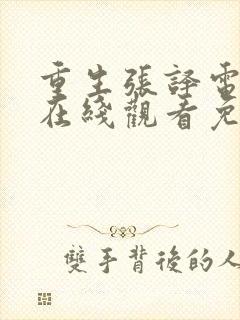 重生張譯電
在綫觀看免
雙手背後的人